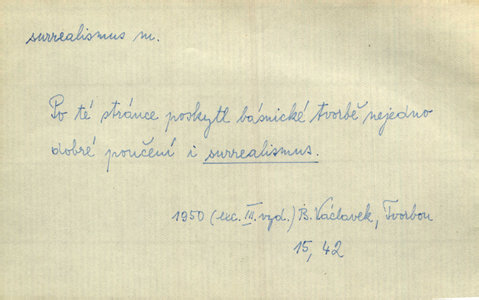 surrealismus m.
Po té stránce poskytl básnické tvorbě nejedno
dobré poučení i surrealismus.
1950 (exc. III. vyd.) B. Václavek, Tvorbou
15, 42